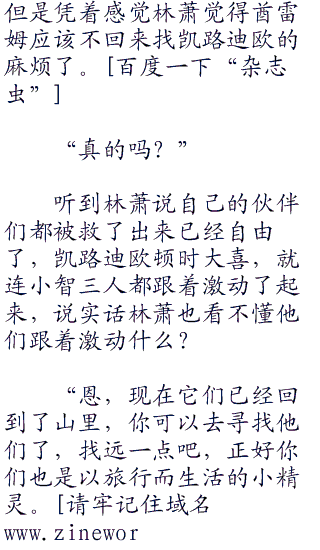 但是凭着感觉林萧觉得酋雷
姆应该不回来找凯路迪欧的
麻烦了。[百度一下“杂志
虫”]
“真的吗？”
听到林萧说自己的伙伴
们都被救了出来已经自由
了，凯路迪欧顿时大喜，就
连小智三人都跟着激动了起
来，说实话林萧也看不懂他
们跟着激动什么？
“恩，现在它们已经回
到了山里，你可以去寻找他
们了，找远一点吧，正好你
们也是以旅行而生活的小精
灵。[请牢记住域名
www.zinewor